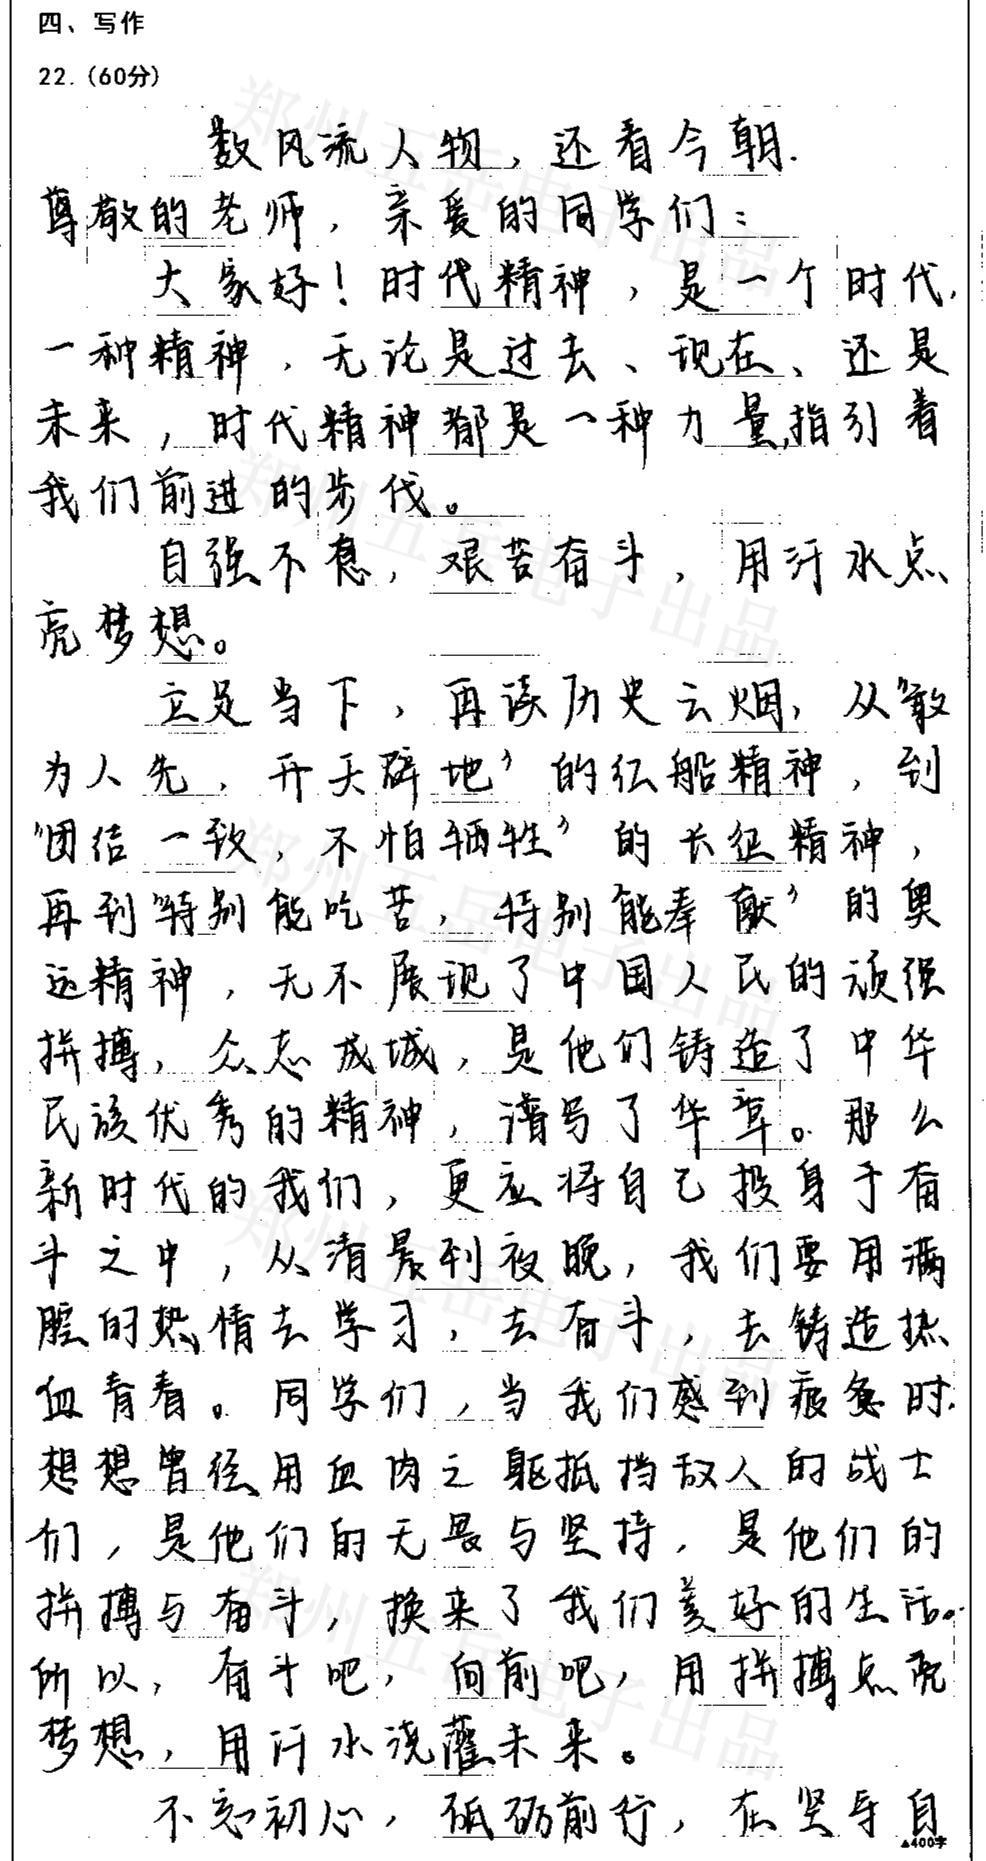 四、写作
22.(60分)
数风流人物，还看今朝.
尊敬的老师，亲爱的同学们：
大家好！时代精神，是一个时代，
一种精神，无论是过去、现在、还是
未来，时代精神都是一种力量,指引着
我们前进的步伐。
自强不息，艰苦奋斗，用汗水点
亮梦想。
立足当下，再读历史云烟，从“敢
为人先，开天辟地”的红船精神，到
“团结一致，不怕牺牲”的长征精神，
再到“特别能吃苦，特别能奉献”的奥
运精神，无不展现了中国人民的顽强
拼搏，众志成城，是他们铸造了中华
民族优秀的精神，谱写了华章。那么
新时代的我们，更应将自己投身于奋
斗之中，从清晨到夜晚，我们要用满
腔的热情去学习，去奋斗，去铸造热
血青春。同学们，当我们感到疲惫时.
想想曾经用血肉之躯抵挡敌人的战士
们，是他们的无畏与坚持，是他们的
拼搏与奋斗，换来了我们美好的生活。
所以，奋斗吧，向前吧，用拼搏点亮
梦想，用汗水浇灌未来。
不忘初心，砥砺前行，在坚守自
▲400字
郑州五岳电子出品
郑州五岳电子出品
郑州五岳电子出品
郑州五岳电子出品
郑州五岳电子出品